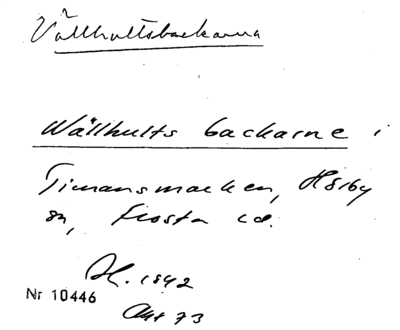 Vållhultsbackarna
Wållhults backarne i
Timansmarken, Hörby
sn, Frosta hd.
1842
Nr 10446
Akt 73